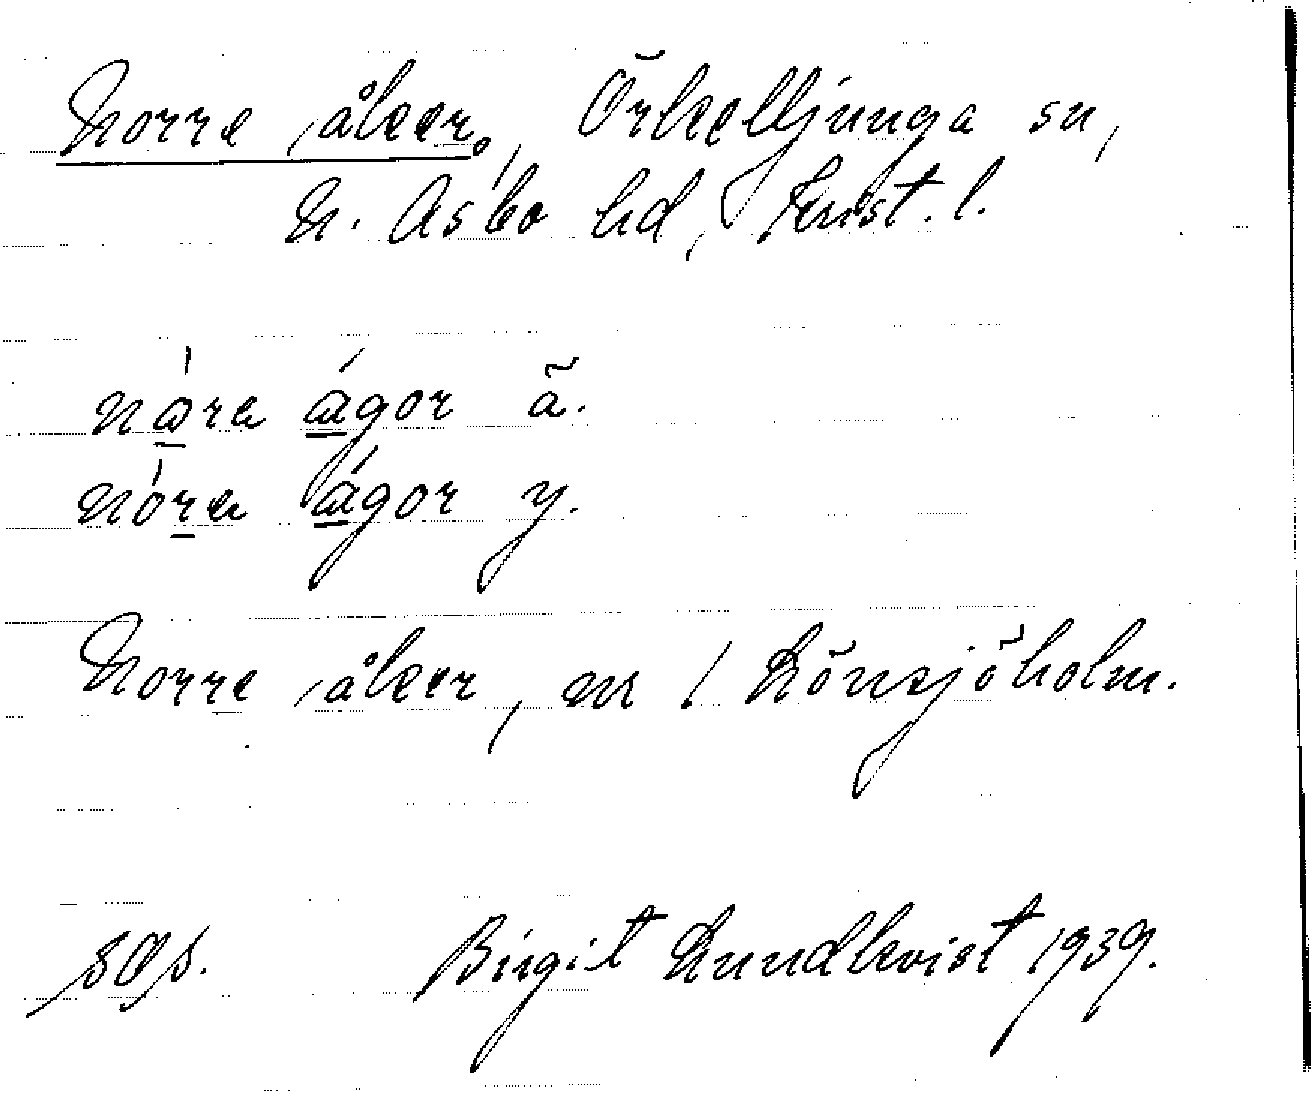 Norre åker, Örkelljunga sn,
N. Åsbo hd, Krist. l.
nå̀ra ágor ä.
nóra ágor y.
Norre åker, er / Lönsjöholm.
Birgit Lundkvist 1939.